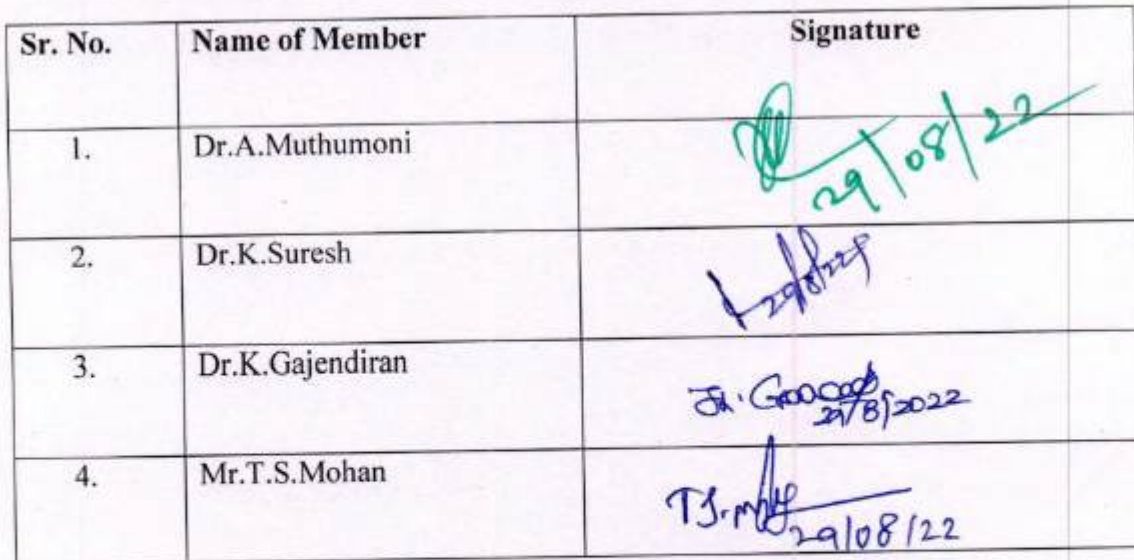 Sr. No. Name of Member Signature
1. Dr.A.Muthumoni 29/08/22
2. Dr.K.Suresh 29/8/22
3. Dr.K.Gajendiran 29/8/2022
4. Mr.T.S.Mohan 29/08/22